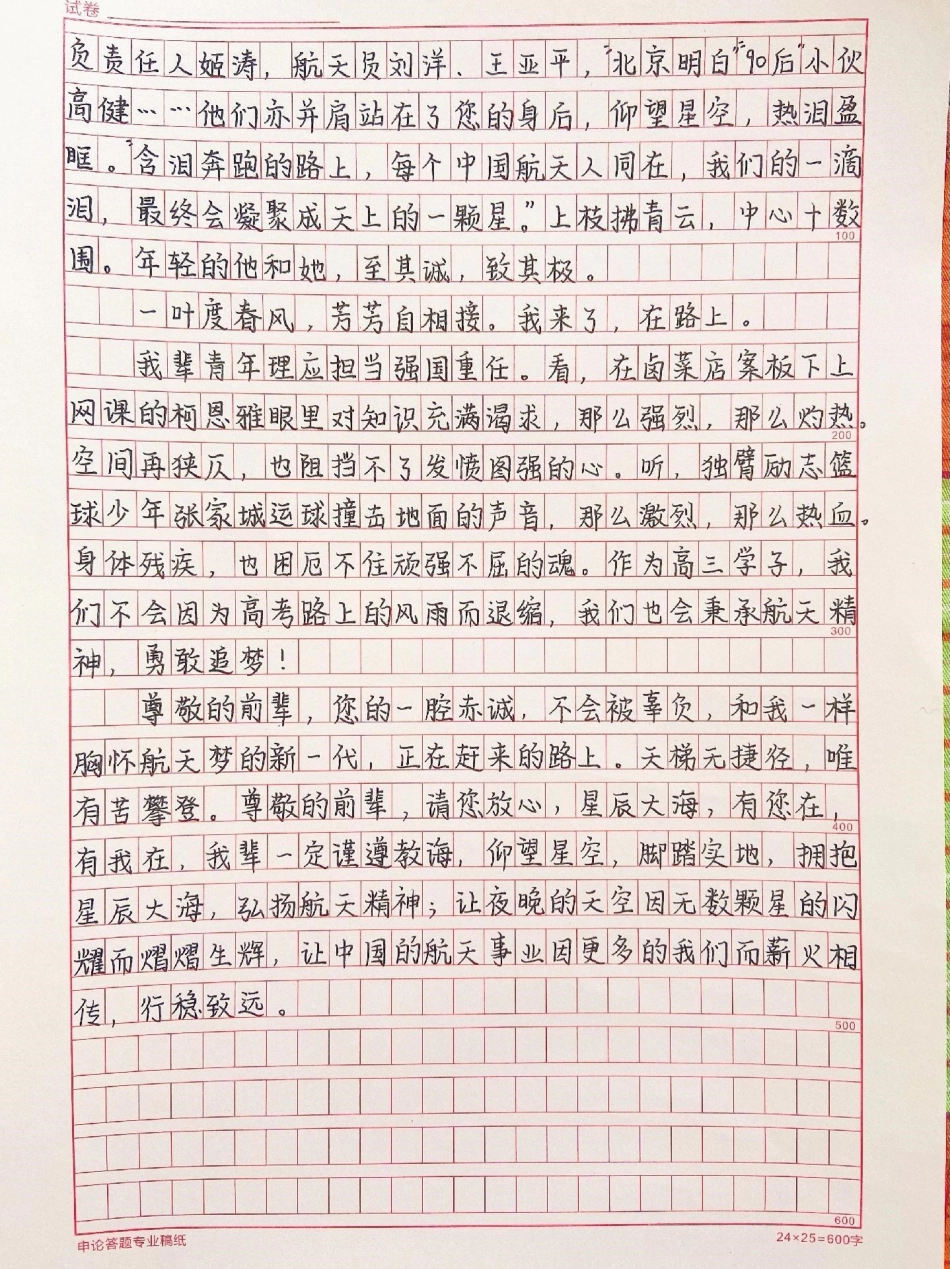 试卷
负责任人姬涛，航天员刘洋、王亚平，“北京明白”“90后”小伙
高健……他们亦并肩站在了您的身后，仰望星空，热泪盈
眶。“含泪奔跑的路上，每个中国航天人同在，我们的一滴
泪，最终会凝聚成天上的一颗星。”上枝拂青云，中心十数
100
围。年轻的他和她，至其诚，致其极。
一叶度春风，芳芳自相接。我来了，在路上。
我辈青年理应担当强国重任。看，在卤菜店案板下上
网课的柯恩雅眼里对知识充满渴求，那么强烈，那么灼热。
200
空间再狭仄，也阻挡不了发愤图强的心。听，独臂励志篮
球少年张家城运球撞击地面的声音，那么激烈，那么热血。
身体残疾，也困厄不住顽强不屈的魂。作为高三学子，我
们不会因为高考路上的风雨而退缩，我们也会秉承航天精
300
神，勇敢追梦！
尊敬的前辈，您的一腔赤诚，不会被辜负，和我一样
胸怀航天梦的新一代，正在赶来的路上。天梯无捷径，唯
有苦攀登。尊敬的前辈，请您放心，星辰大海，有您在，
400
有我在，我辈一定谨遵教海，仰望星空，脚踏实地，拥抱
星辰大海，弘扬航天精神；让夜晚的天空因无数颗星的闪
耀而熠熠生辉，让中国的航天事业因更多的我们而薪火相
传，行稳致远。
500
600
申论答题专业稿纸
24×25=600字